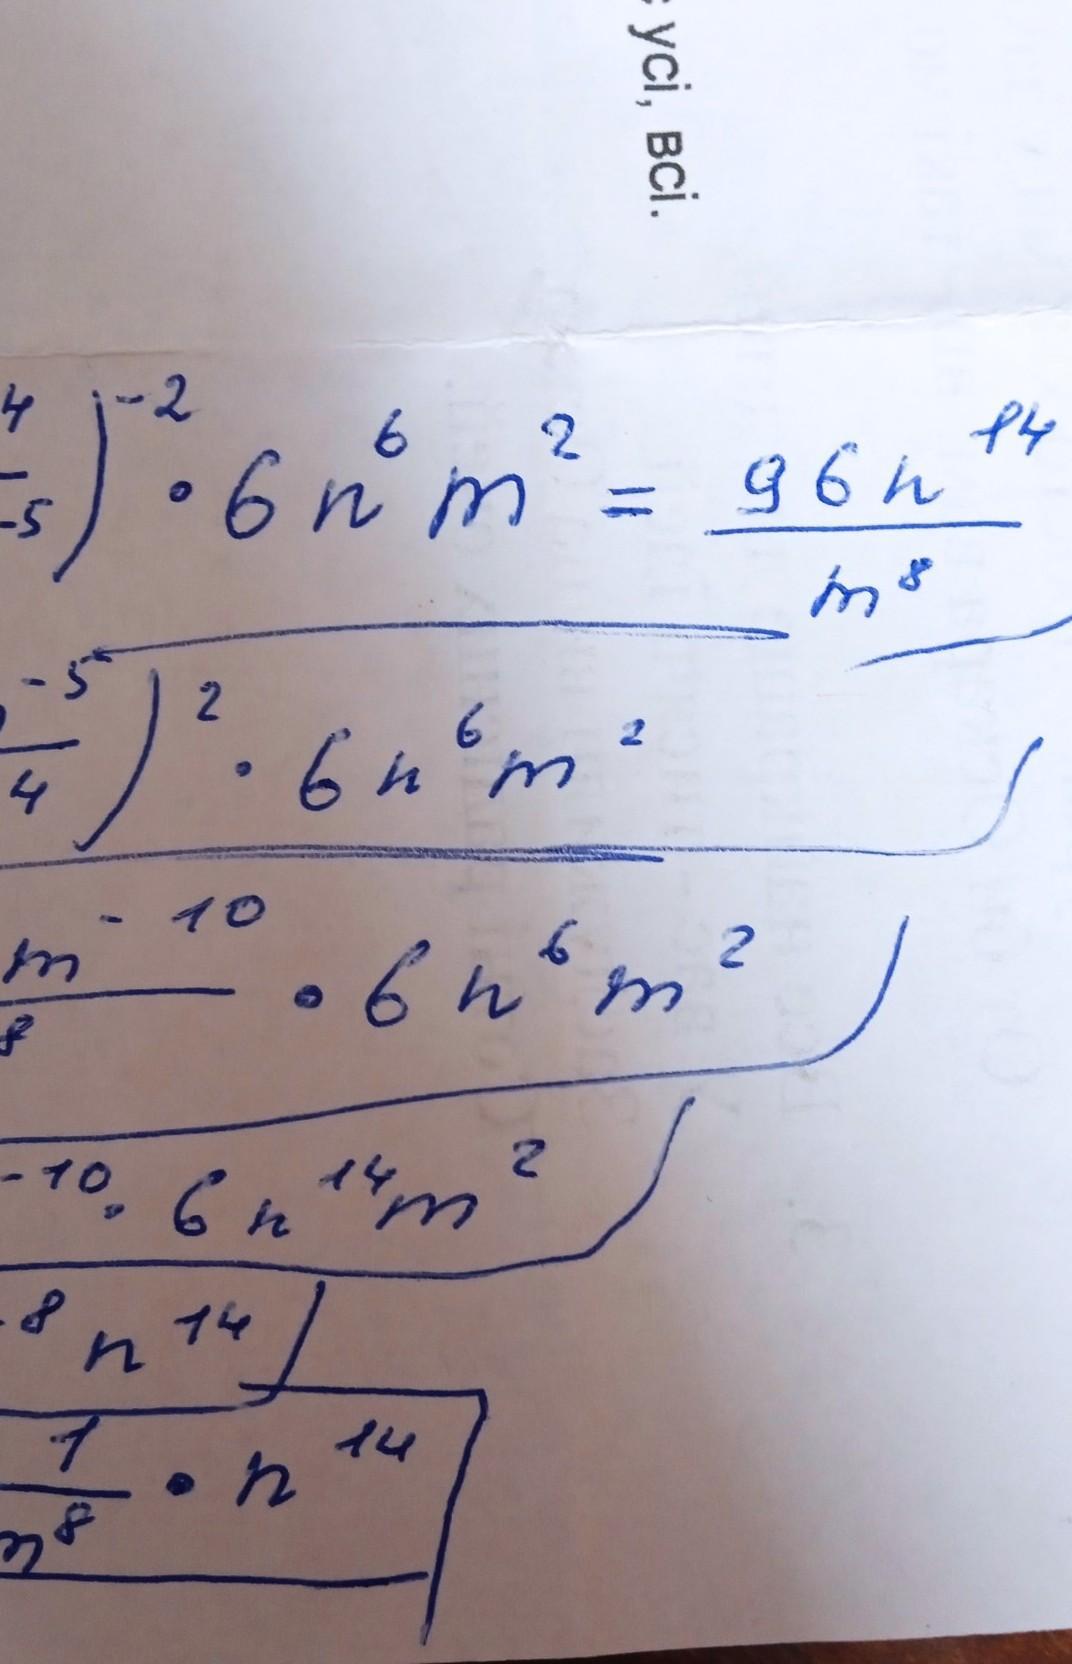 : усі, всі.
4/-5)^-2 · 6n^6 m^2 = 96n^14/m^8
-5/4)^2 · 6n^6 m^2
m^-10/8 · 6n^6 m^2
-10 · 6n^14 m^2
-8 n^14
1/m^8 · n^14